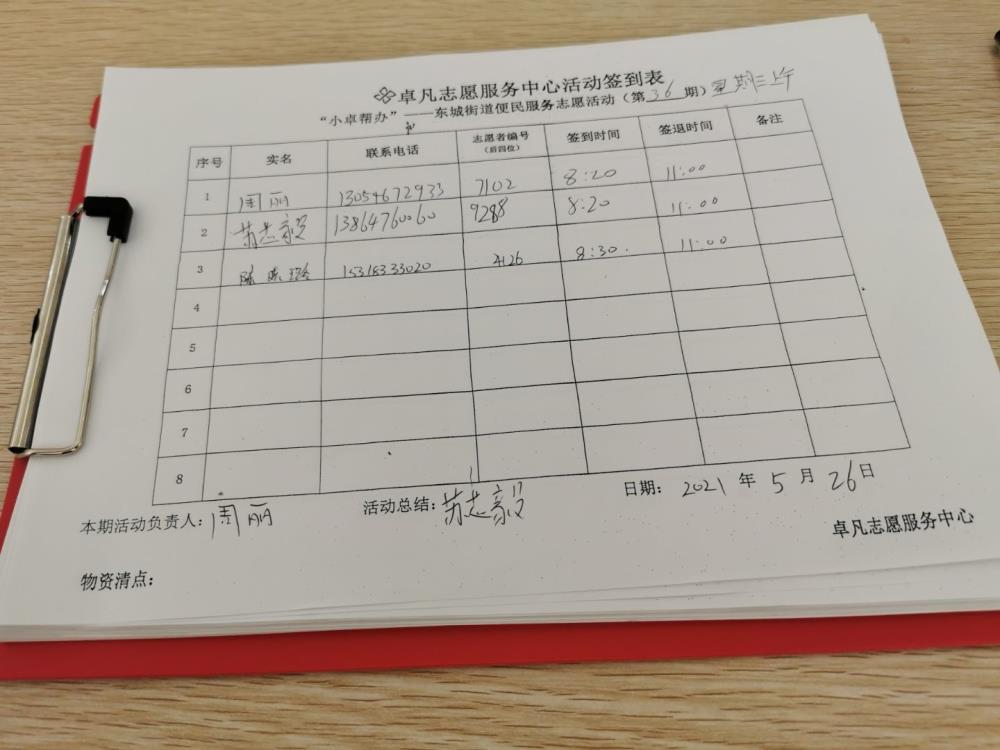 卓凡志愿服务中心活动签到表
“小卓帮办”——东城街道便民服务志愿活动（第36期）星期三上午
序号 实名 联系电话 志愿者编号（后四位） 签到时间 签退时间 备注
1 周丽 13054672933 7102 8:20 11:00
2 苏志毅 13864760060 9288 8:20 11:00
3 陈 15318333020 4126 8:30. 11:00
4
5
6
7
8
本期活动负责人：周丽 活动总结：苏志毅 日期：2021年5月26日
卓凡志愿服务中心
物资清点：